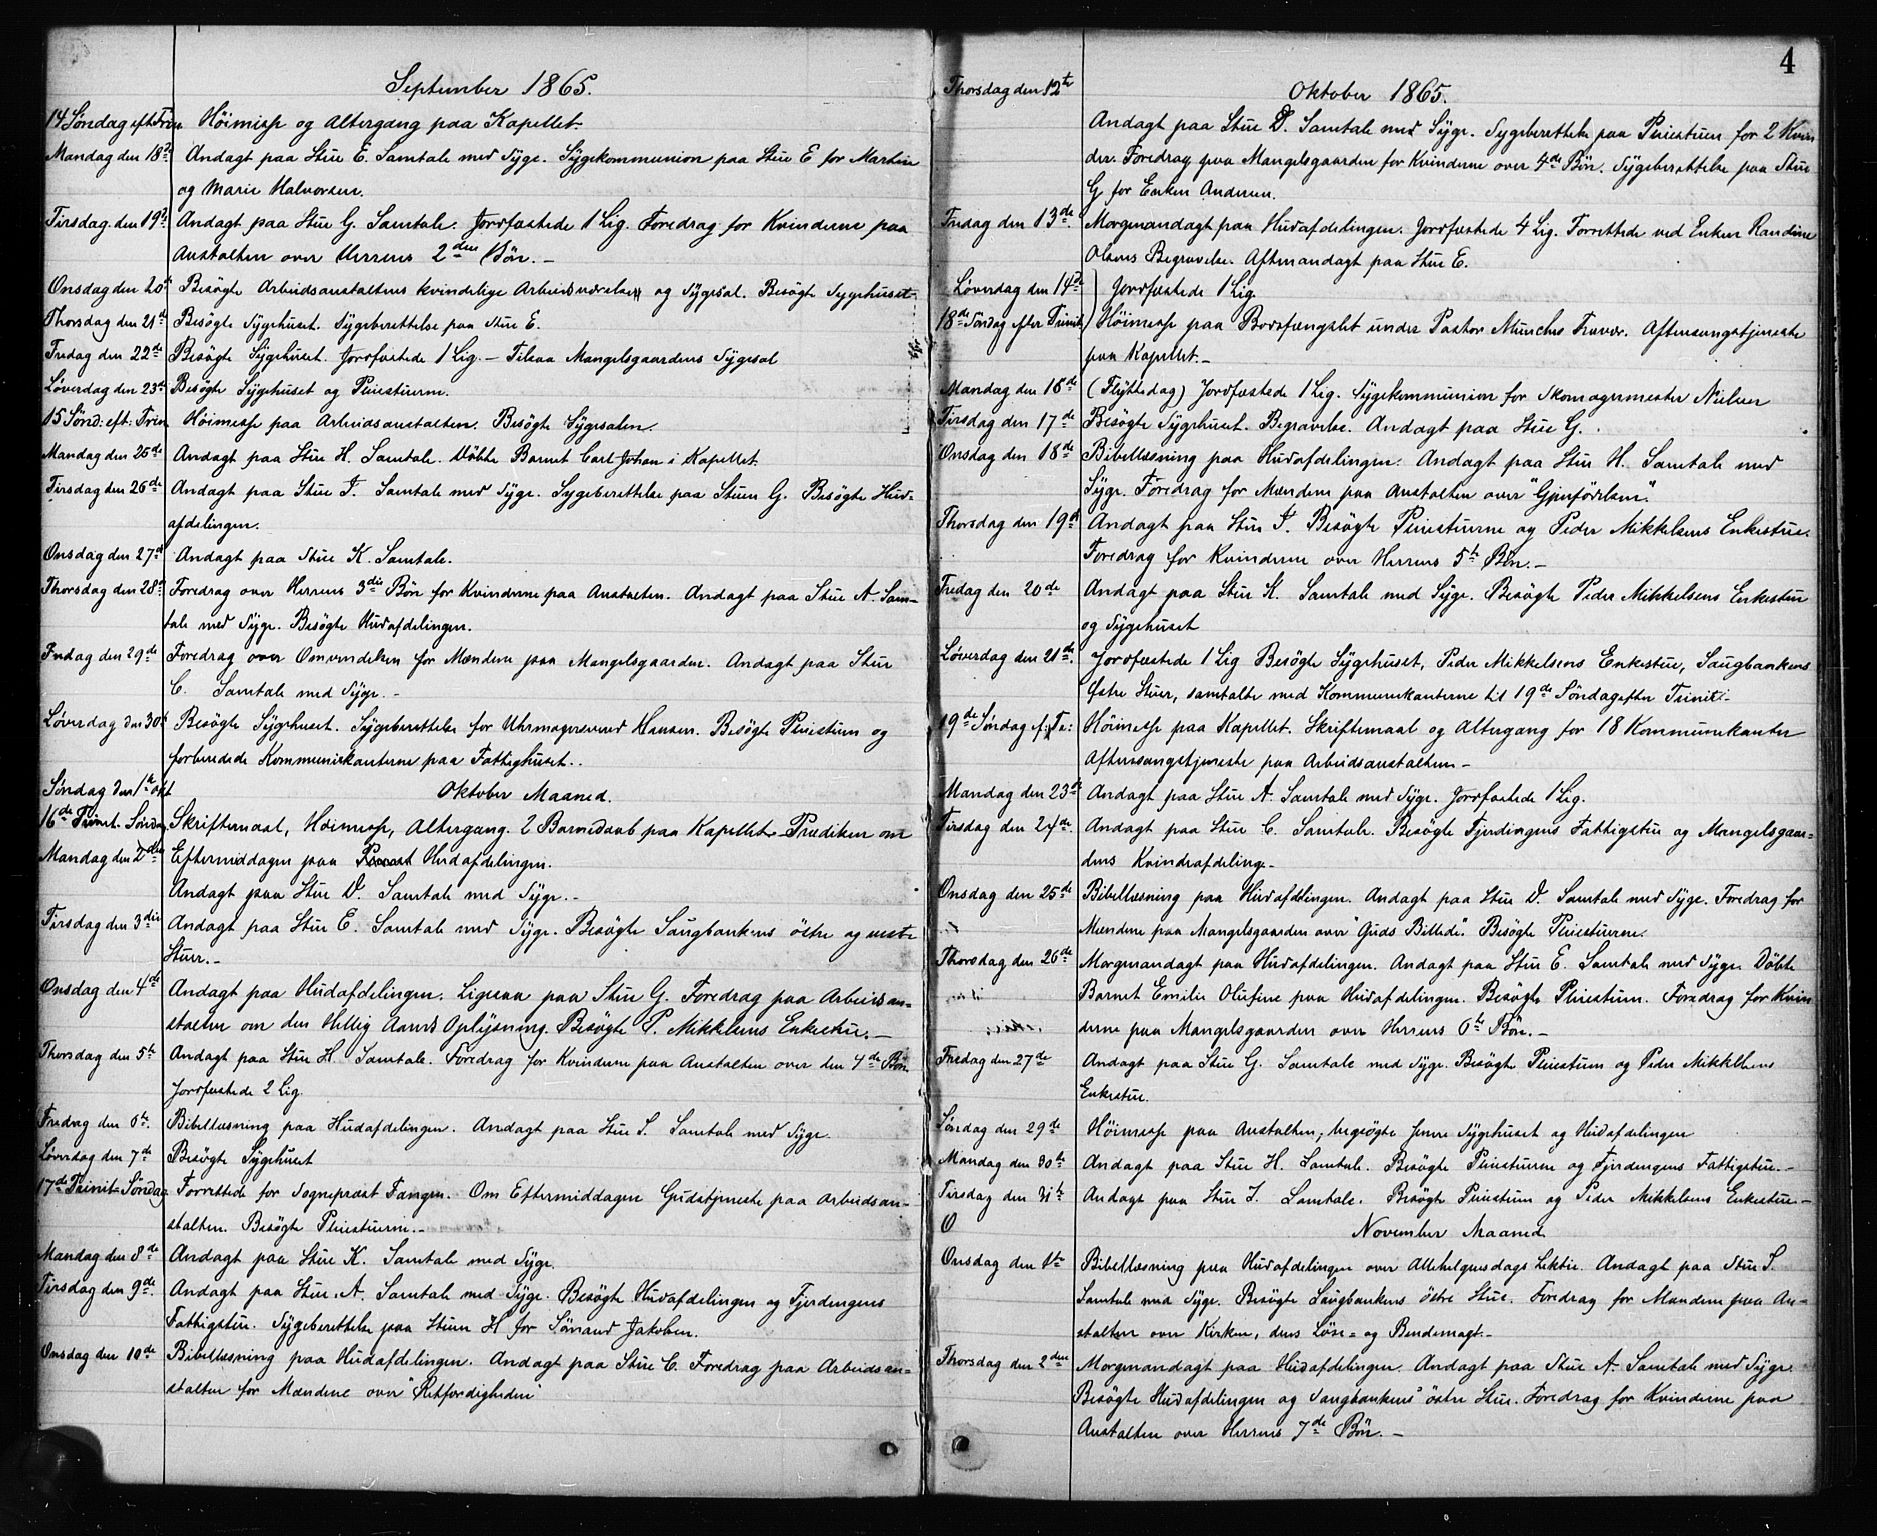 September 1865.
14 Søndag eft Trin. Höimesse og Altergang paa Kapellet.
Mandag den 18de Andagt paa Stue E. Samtale med Syge. Sygekommunion paa Stue E for Martine
og Marie Halvorsen.
Tirsdag den 19de Andagt paa Stue G. Samtale. Jordfæstede 1 Lig. Foredrag for Kvinderne paa
Anstalten over Herrens 2den Bön. —
Onsdag den 20de Besøgte Arbeidsanstaltens kvindelige Arbeidsværelse og Sygesal. Besøgte Sygehuset
Thorsdag den 21de Besøgte Sygehuset. Sygeberettelse paa Stue E.
Fredag den 22de Besøgte Sygehuset. Jordfæstede 1 Lig. — Tilsaa Mangelsgaardens Sygesal
Løverdag den 23de Besøgte Sygehuset og Pleiestuerne.
15 Sønd: eft: Trin Höimesse paa Arbeidsanstalten. Besøgte Sygesalen.
Mandag den 25de Andagt paa Stue H. Samtale. Döbte Barnet Carl Johan i Kapellet.
Tirsdag den 26de Andagt paa Stue I. Samtale med Syge. Sygeberettelse paa Stuen G. Besøgte Hud=
afdelingen.
Onsdag den 27de Andagt paa Stue K. Samtale.
Thorsdag den 28de Foredrag over Herrens 3die Bön for Kvinderne paa Anstalten. Andagt paa Stue A. Sam=
tale med Syge. Besøgte Hudafdelingen.
Fredag den 29de Foredrag over Omvendelsen for Mændene paa Mangelsgaarden. Andagt paa Stue
C. Samtale med Syge. —
Løverdag den 30te Besøgte Sygehuset. Sygeberettelse for Uhrmagersvend Hansen. Besøgte Pleiestuen og
forberedede Kommunikanterne paa Fattighuset..
Søndag den 1te Okt Oktober Maaned.
16de Trinit. Søndag Skriftemaal, Höimesse, Altergang. 2 Barnedaab paa Kapellet. Prædiken om
Mandag den 2den Eftermiddagen paa Hudafdelingen.
Andagt paa Stue D. Samtale med Syge. —
Tirsdag den 3die Andagt paa Stue E. Samtale med Syge. Besøgte Saugbankens östre og vestre
Stuer. —
Onsdag den 4de Andagt paa Hudafdelingen. Ligesaa paa Stue G. Foredrag paa Arbeidsan=
stalten om den Hellig Aands Oplysning. Besøgte P. Mikkelsens Enkestue. —
Thorsdag den 5te Andagt paa Stue H. Samtale. Foredrag for Kvinderne paa Anstalten over den 4de Bön
Jordfæstede 2 Lig.
Fredag den 6te. Bibellæsning paa Hudafdelingen. Andagt paa Stue I. Samtale med Syge.
Løverdag den 7de Besøgte Sygehuset
17de Trinit= Söndag Forrettede for Sognepræst Fangen. Om Eftermiddagen Gudstjeneste paa Arbeidsan=
stalten. Besøgte Pleiestuerne. —
Mandag den 8de Andagt paa Stue K. Samtale med Syge.
Tirsdag den 9de. Andagt paa Stue A. Samtale med Syge. Besøgte Hudafdelingen og Fjerdingens
Fattigstue. Sygeberettelse paa Stuen H for Sömand Jakobsen.
Onsdag den 10de Bibellæsning paa Hudafdelingen. Andagt paa Stue C. Foredrag paa Arbeidsan=
stalten for Mændene over "Retfærdigheden"
4
Thorsdag den 12te Oktober 1865.
Andagt paa Stue D. Samtale med Syge. Sygeberettelse paa Pleiestuen for 2 Kvin
der. Foredrag paa Mangelsgaarden for Kvinderne over 4de Bön. Sygeberettelse paa Stue
G for Enken Andersen.
Fredag den 13de. Morgenandagt paa Hudafdelingen. Jordfæstede 4 Lig. Forrettede ved Enken Randine
Olsens Begravelse. Aftenandagt paa Stue E.
Løverdag den 14de Jordfæstede 1 Lig.
18de Söndag efter Trinit. Höimesse paa Bodsfængslet under Pastor Munchs Fravær. Aftensangstjeneste
paa Kapellet. —
Mandag den 16de (Flyttedag) Jordfæstede 1 Lig. Sygekommunion for Skomagermester Nielsen
Tirsdag den 17de Besøgte Sygehuset. Begravelse. Andagt paa Stue G.
Onsdag den 18de Bibellæsning paa Hudafdelingen. Andagt paa Stue H. Samtale med
Syge. Foredrag for Mændene paa Anstalten over "Gjenfödelsen".
Thorsdag den 19de Andagt paa Stue I. Besøgte Pleiestuerne og Peder Mikkelsens Enkestue.
Foredrag for Kvinderne over Herrens 5te Bön. —
Fredag den 20de Andagt paa Stue K. Samtale med Syge. Besøgte Peder Mikkelsens Enkestue
og Sygehuset
Løverdag den 21de. Jordfæstede 1 Lig Besøgte Sygehuset, Peder Mikkelsens Enkestue, Saugbankens
Østre Stuer, samtalte med Kommunikanterne til 19de Söndag efter Trinit: —
19de Søndag ef: Tr: Höimesse paa Kapellet. Skriftemaal og Altergang for 18 Kommunikanter
Aftensangstjeneste paa Arbeidsanstalten —
Mandag den 23de Andagt paa Stue A. Samtale med Syge. Jordfæstede 1 Lig.
Tirsdag den 24de. Andagt paa Stue C. Samtale. Besøgte Fjerdingens Fattigstue og Mangelsgaar=
dens Kvindeafdeling. —
Onsdag den 25de Bibellæsning paa Hudafdelingen. Andagt paa Stue D. Samtale med Syge. Foredrag for
Mændene paa Mangelsgaarden over "Guds Billede". Besøgte Pleiestuerne.
Thorsdag den 26de Morgenandagt paa Hudafdelingen. Andagt paa Stue E. Samtale med Syge. Döbte
Barnet Emilie Olufine paa Hudafdelingen. Besøgte Pleiestuen. Foredrag for Kvin
derne paa Mangelsgaarden over Herrens 6te Bön. —
Fredag den 27de Andagt paa Stue G. Samtale med Syge. Besøgte Pleiestuen og Peder Mikkelsens
Enkestue.
Søndag den 29de Höimesse paa Anstalten, besøgte Sygehuset og Hudafdelingen
Mandag den 30te Andagt paa Stue H. Samtale. Besøgte Pleiestuerne og Fjerdingens Fattigstue. —
Tirsdag den 31te Andagt paa Stue I. Samtale. Besøgte Pleiestuen og Peder Mikkelsens Enkestue —
O November Maaned
Onsdag den 1te Bibellæsning paa Hudafdelingen over Allehelgensdags Lektie. Andagt paa Stue I.
Samtale med Syge. Besøgte Saugbankens östre Stue. Foredrag for Mændene paa An=
stalten over Kirken, dens Løse= og Bindemagt. —
Thorsdag den 2den Morgenandagt paa Hudafdelingen. Andagt paa Stue A. Samtale med Syge.
Besøgte Hudafdelingen og Saugbankens östre Stue. Foredrag for Kvinderne paa
Anstalten over Herrens 7de Bön. —